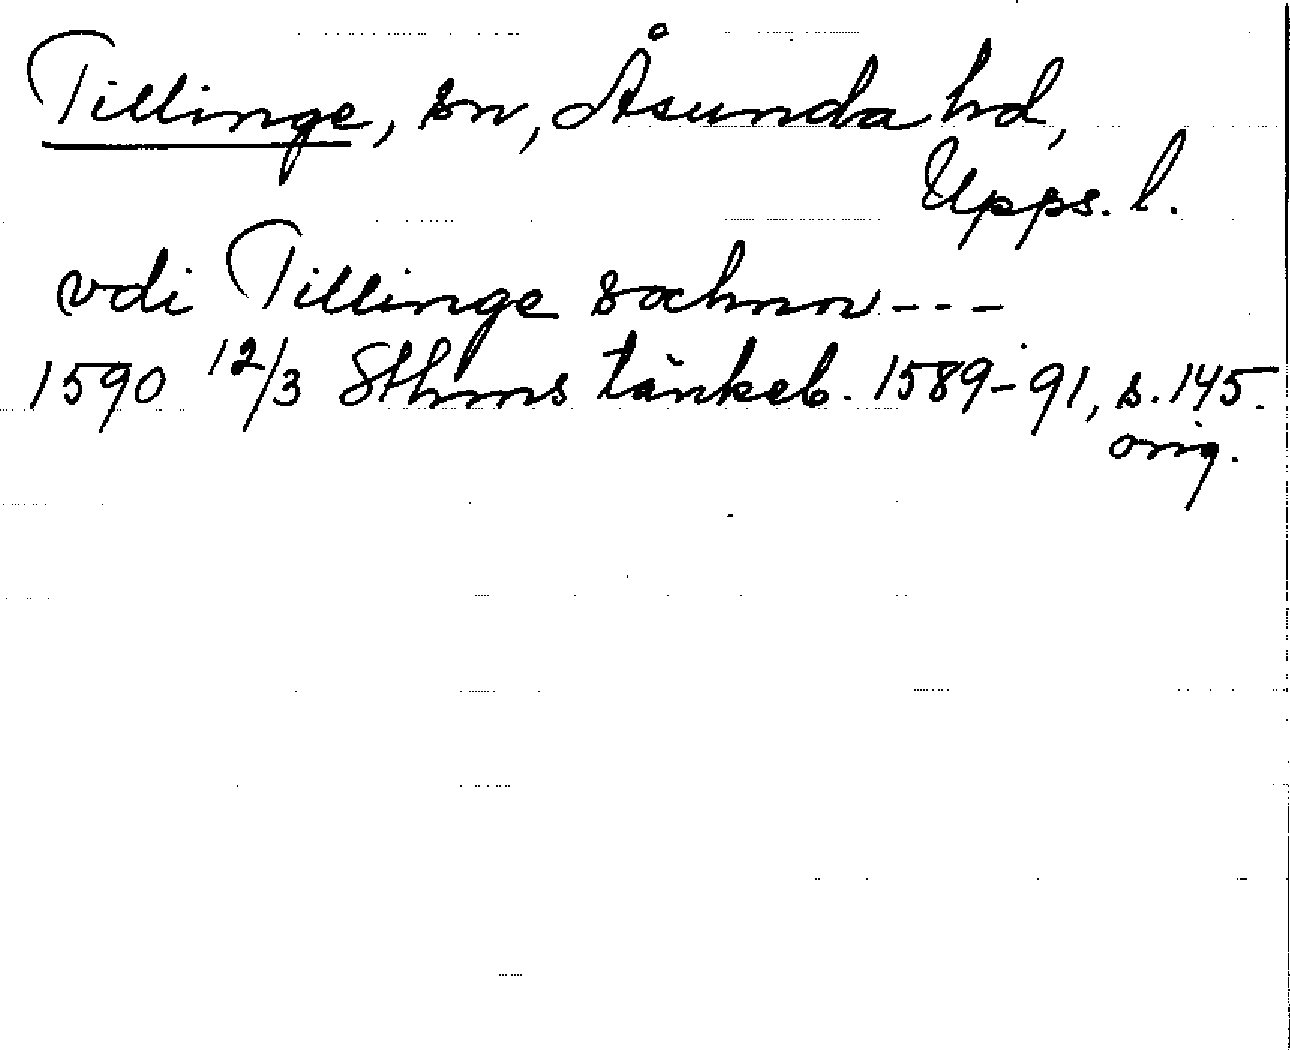 Tillinge, sn, Åsunda hd,
Upps. l.
vdi Tillinge sochnn - - -
1590 12/3 Sthms tänkeb. 1589-91, s. 145.
orig.